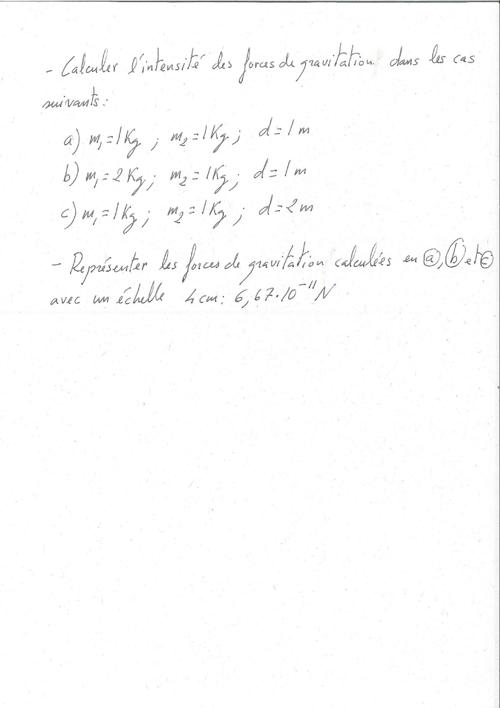 - Calculer l'intensité des forces de gravitation dans les cas
suivants:
a) m₁=1Kg ; m₂=1Kg ; d=1m
b) m₁=2Kg ; m₂=1Kg ; d=1m
c) m₁=1Kg ; m₂=1Kg ; d=2m
- Représenter les forces de gravitation calculées en ⓐ, ⓑ et ⓒ
avec un échelle 4cm: 6,67·10⁻¹¹N